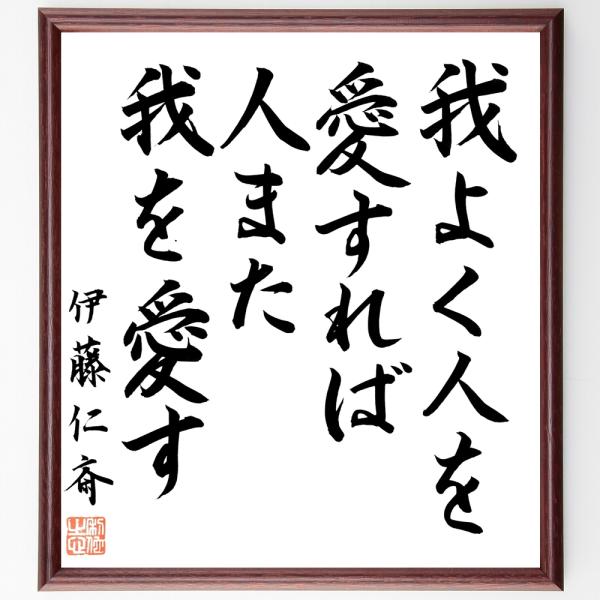 我よく人を
愛すれば
人また
我を愛す
伊藤仁斎